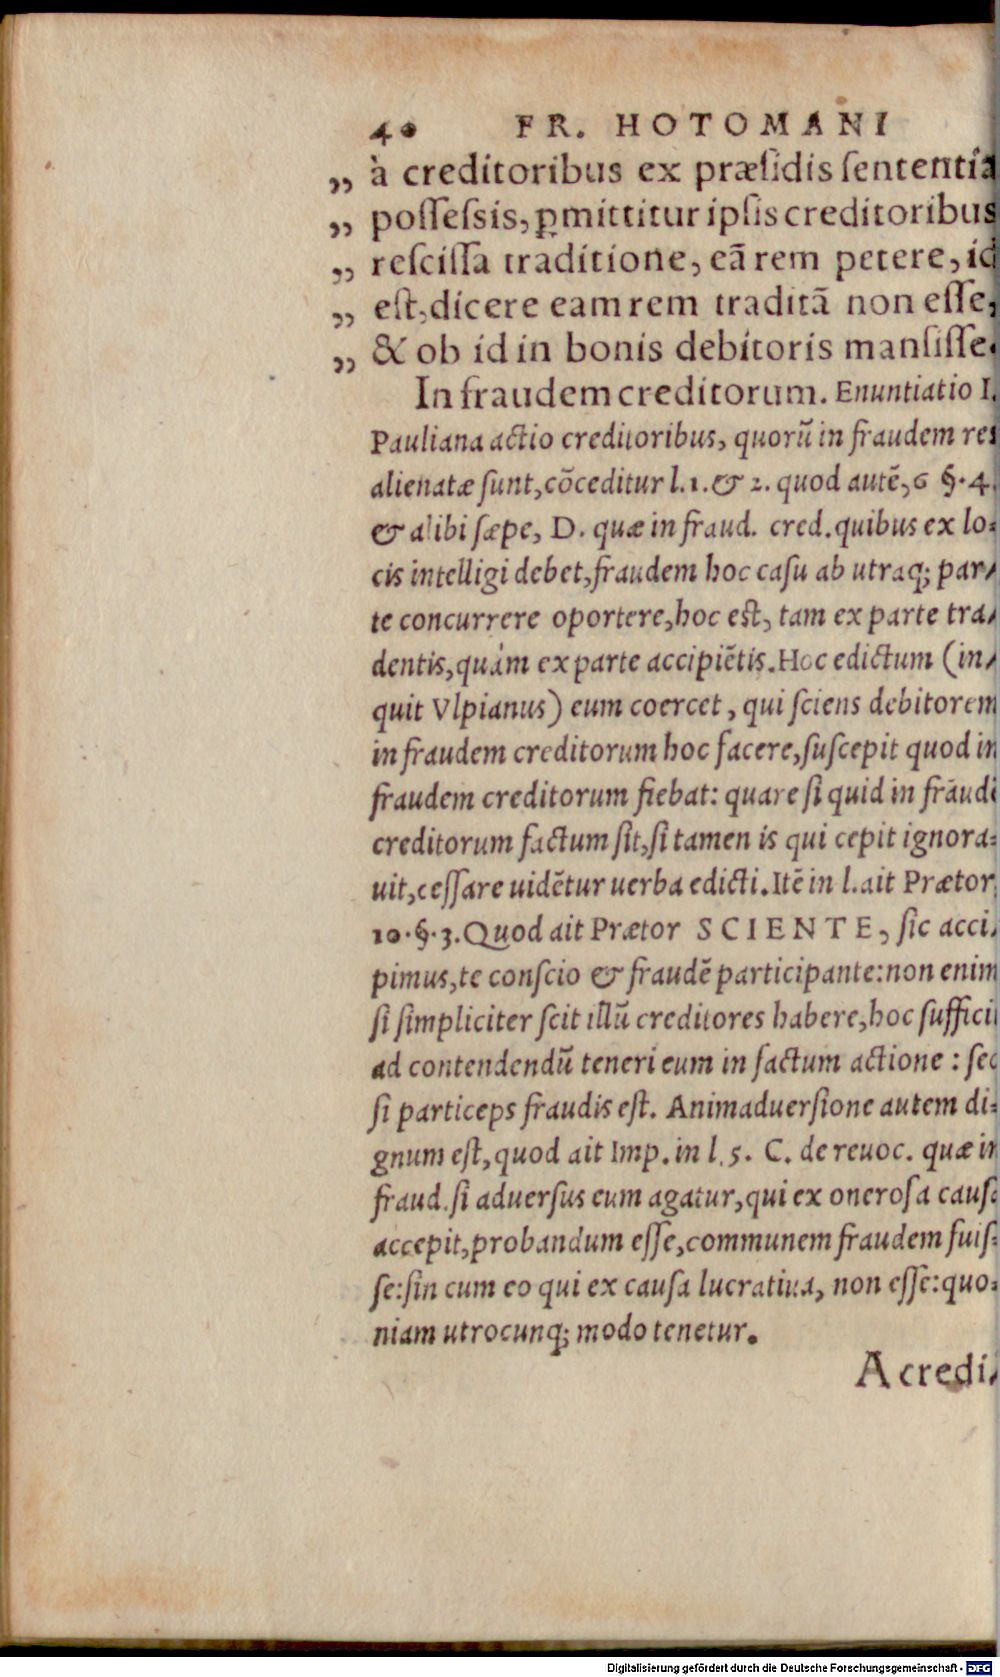 40 FR. HOTOMANI
„ à creditoribus ex præsidis sententia
„ possessis, ꝑmittitur ipsis creditoribus
„ rescissa traditione, eã rem petere, id
„ est, dicere eam rem traditã non esse,
„ & ob id in bonis debitoris mansisse.
In fraudem creditorum. Enuntiatio I.
Pauliana actio creditoribus, quorũ in fraudem res
alienatæ sunt, cõceditur l. 1. & 2. quod autẽ, 6 §. 4.
& alibi sæpe, D. quæ in fraud. cred. quibus ex lo-
cis intelligi debet, fraudem hoc casu ab utraq; par-
te concurrere oportere, hoc est, tam ex parte tra-
dentis, quàm ex parte accipiẽtis. Hoc edictum (in-
quit Vlpianus) eum coercet, qui sciens debitorem
in fraudem creditorum hoc facere, suscepit quod in
fraudem creditorum fiebat: quare si quid in frãudẽ
creditorum factum sit, si tamen is qui cepit ignora-
uit, cessare uidẽtur uerba edicti. Itẽ in l. ait Prætor
10. §. 3. Quod ait Prætor SCIENTE, sic acci-
pimus, te conscio & fraudẽ participante: non enim
si simpliciter scit illũ creditores habere, hoc sufficit
ad contendendũ teneri eum in factum actione : sed
si particeps fraudis est. Animaduersione autem di-
gnum est, quod ait Imp. in l. 5. C. de reuoc. quæ in
fraud. si aduersus eum agatur, qui ex onerosa causa
accepit, probandum esse, communem fraudem fuis-
se: sin cum eo qui ex causa lucratiua, non esse: quo-
niam utrocunq; modo tenetur.
A credi-
Digitalisierung gefördert durch die Deutsche Forschungsgemeinschaft - DFG